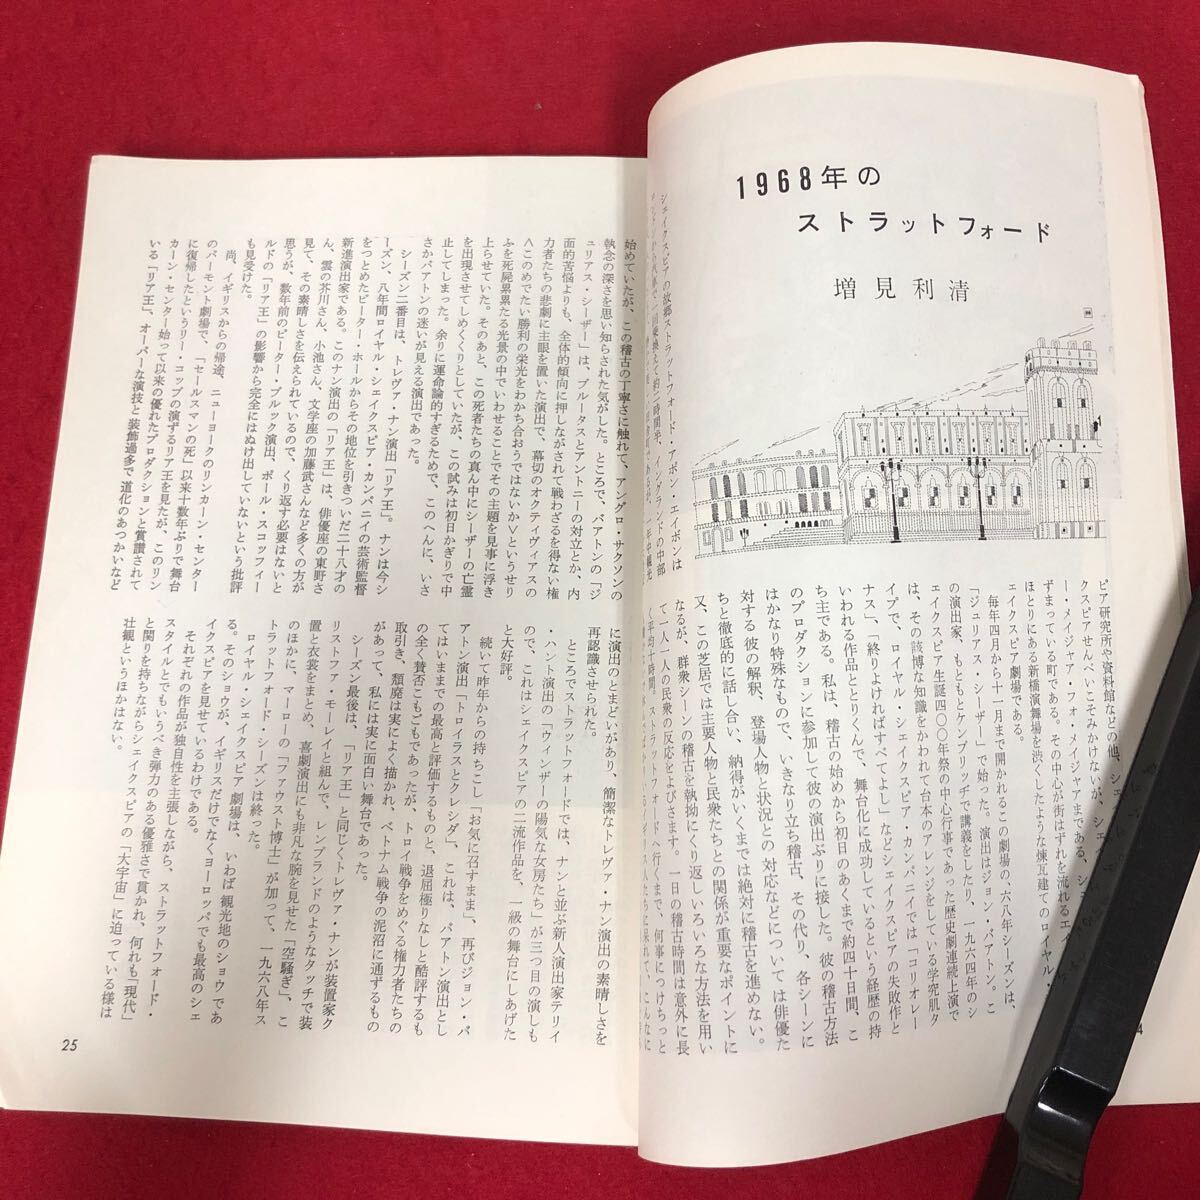 1968年の
ストラットフォード
増見利清
シェイクスピアの故郷ストラットフォード・アポン・エイボンは
ピア研究所や資料館などの他、シェ
クスピアせんべいこそみかけないが、シェイ
ー・メイジャア・フォ・メイジャアまである、シェ
ずまっている町である。その中心が街はずれを流れるエイ
ほとりにある新橋演舞場を渋くしたような煉瓦建てのロイヤル・
ェイクスピア劇場である。
毎年四月から十一月まで開かれるこの劇場の、六八年シーズンは、
「ジュリアス・シーザー」で始った。演出はジョン・バアトン。こ
の演出家、もともとケンブリッヂで講義をしたり、一九六四年のシ
ェイクスピア生誕四〇〇年祭の中心行事であった歴史劇連続上演で
は、その該博な知識をかわれて台本のアレンジをしている学究肌タ
イプで、ロイヤル・シェイクスピア・カンパニイでは「コリオレー
ナス」、「終りよければすべてよし」などシェイクスピアの失敗作と
いわれる作品ととりくんで、舞台化に成功しているという経歴の持
ち主である。私は、稽古の始めから初日のあくまで約四十日間、こ
のプロダクションに参加して彼の演出ぶりに接した。彼の稽古方法
はかなり特殊なもので、いきなり立ち稽古、その代り、各シーンに
対する彼の解釈、登場人物と状況との対応などについては俳優た
ちと徹底的に話し合い、納得がいくまでは絶対に稽古を進めない。
又、この芝居では主要人物と民衆たちとの関係が重要なポイントに
なるが、群衆シーンの稽古を執拗にくり返しいろいろな方法を用い
て一人一人の民衆の反応をよびさます。一日の稽古時間は意外に長
く平均十時間。ストラットフォードへ行くまで、何事につけちっと
始めていたが、この稽古の丁寧さに触れて、アングロ・サクソンの
執念の深さを思い知らされた気がした。ところで、バアトンの「ジ
ュリアス・シーザー」は、ブルータスとアントニーの対立とか、内
面的苦悩よりも、全体的傾向に押しながされて戦わざるを得ない権
力者たちの悲劇に主眼を置いた演出で、幕切のオクティヴィアスの
〈このめでたい勝利の栄光をわかち合おうではないか〉というせり
ふを死屍累累たる光景の中でいわせることでその主題を見事に浮き
上らせていた。そのあと、この死者たちの真ん中にシーザーの亡霊
を出現させてしめくくりとしていたが、この試みは初日かぎりで中
止してしまった。余りに運命論的すぎるためで、このへんに、いさ
さかバアトンの迷いが見える演出であった。
シーズン二番目は、トレヴァ・ナン演出「リア王」。ナンは今シ
ーズン、八年間ロイヤル・シェイクスピア・カンパニイの芸術監督
をつとめたピーター・ホールからその地位を引きついだ二十八才の
新進演出家である。このナン演出の「リア王」は、俳優座の東野さ
ん、雲の芥川さん、小池さん、文学座の加藤武さんなど多くの方が
見て、その素晴しさを伝えられているので、くり返す必要はないと
思うが、数年前のピーター・ブルック演出、ポール・スコッフィー
ルドの「リア王」の影響から完全にはぬけ出していないという批評
も見受けた。
尚、イギリスからの帰途、ニューヨークのリンカーン・センター
のバーモント劇場で、「セールスマンの死」以来十数年ぶりで舞台
に復帰したというリー・コッブの演ずるリア王を見たが、このリン
カーン・センター始って以来の優れたプロダクションと賞讃されて
いる「リア王」、オーバーな演技と装飾過多で道化のあつかいなど
に演出のとまどいがあり、簡潔なトレヴァ・ナン演出の素晴しさを
再認識させられた。
ところでストラットフォードでは、ナンと並ぶ新人演出家テリイ
・ハント演出の「ウィンザーの陽気な女房たち」が三つ目の演しも
ので、これはシェイクスピアの二流作品を、一級の舞台にしあげた
と大好評。
続いて昨年からの持ちこし「お気に召すまま」、再びジョン・バ
アトン演出「トロイラスとクレシダ」、これは、バアトン演出とし
てはいままでの最高と評価するものと、退屈極りなしと酷評するも
の全く賛否こもごもであったが、トロイ戦争をめぐる権力者たちの
取引き、頽廃は実によく描かれ、ベトナム戦争の泥沼に通ずるもの
があって、私には実に面白い舞台であった。
シーズン最後は、「リア王」と同じくトレヴァ・ナンが装置家ク
リストファ・モーレイと組んで、レンブランドのようなタッチで装
置と衣裳をまとめ、喜劇演出にも非凡な腕を見せた「空騒ぎ」、こ
のほかに、マーローの「ファウスト博士」が加って、一九六八年ス
トラットフォード・シーズンは終った。
ロイヤル・シェイクスピア劇場は、いわば観光地のショウであ
る。そのショウが、イギリスだけでなくヨーロッパでも最高のシェ
イクスピアを見せているわけである。
それぞれの作品が独自性を主張しながら、ストラットフォード・
スタイルとでもいうべき弾力のある優雅さで貫かれ、何れも「現代」
と関りを持ちながらシェイクスピアの「大宇宙」に迫っている様は
壮観というほかはない。
25